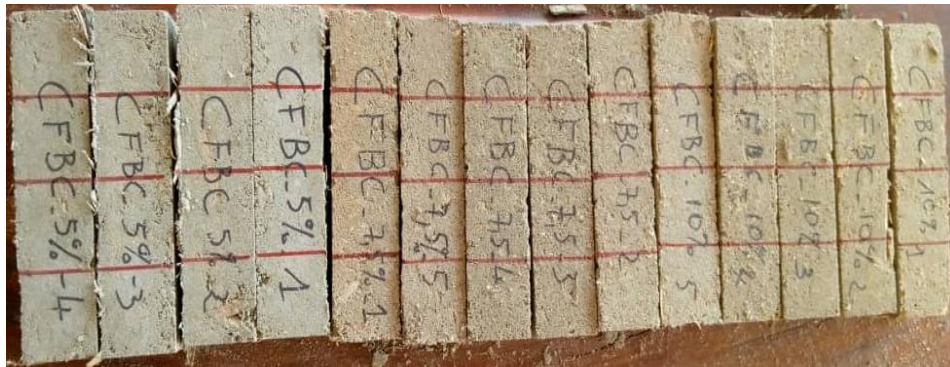 CFBC-5%-4
CFBC 5%-3
CFBC 5% 2
CFBC-5% 1
CFBC-7,5%-1
CFBC-7,5%5
CFBC-7,5-4
CFBC-7,5-3
CFBC-7,5-2
CFBC-10% 5
CFBC-10% 4
CFBC-10% 3
CFBC-10% 2
CFBC 10% 1